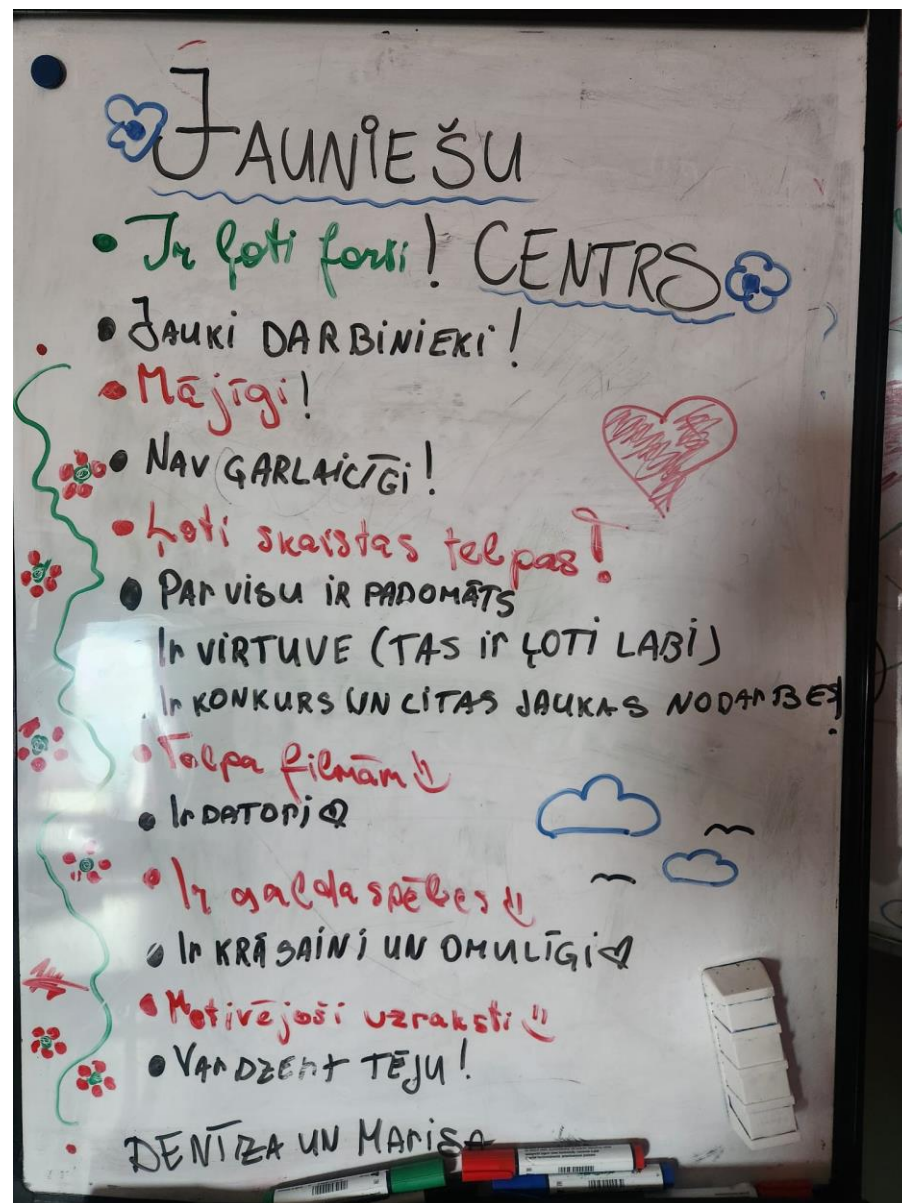 JAUNIEŠU
CENTRS
• Ir ļoti forši!
• JAUKI DARBINIEKI!
• Mājīgi!
• NAV GARLAICĪGI!
• Ļoti skaistas telpas!
• PAR VISU IR PADOMĀTS
Ir VIRTUVE (TAS ir ĻOTI LABI)
Ir KONKURS UN CITAS JAUKAS NODARBES!
• Telpa filmām
• Ir DATORI
• Ir galda spēles
• Ir KRĀSAINI UN OMULĪGI
• Motivējoši uzraksti
• VAR DZERT TĒJU!
UN